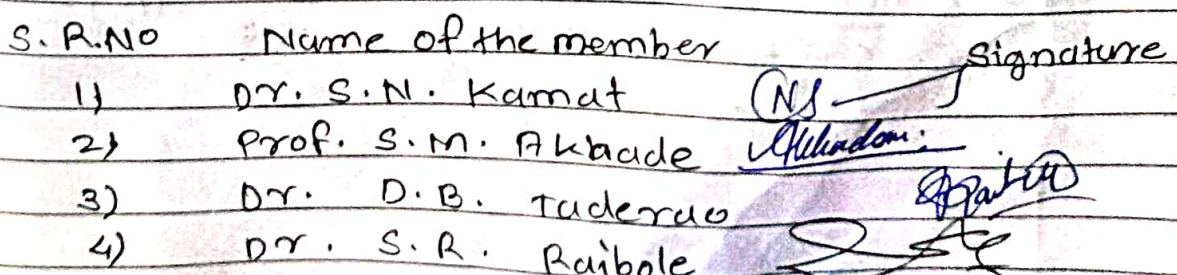 S. R.NO Name of the member Signature
1) Dr. S.N. Kamat
2) Prof. S.M. Akhade
3) Dr. D.B. Taderao
4) Dr. S.R. Raibole